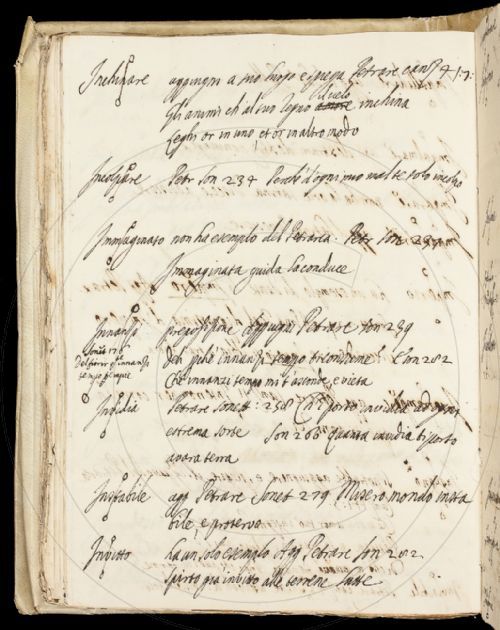 Inchinare aggiugni a suo luogo e spiega Petrarc canz 4
Gli animi ch al suo regno il cielo inchina
Leghi or in uno, et or in altro nodo
Incolpare Petr son 234 Perch d'ogni mio mal te solo incolpo
Immaginato non ha esempio del Petrarca. Petr son 237
Immaginata guida la conduce
Innanzi prepositione Aggiugni Petrarc son 239
Deh perche innanzi tempo E son 282
Che innanzi tempo mi t'asconde, e vieta
Sonet
Del fiorir innanzi
tempo tempie
Invidia Petrarc Sonet: 258 invidia
estrema sorte Son 260 Quanta invidia ti porto
avara terra
Instabile agg Petrarc Sonet 279 Misero mondo insta
bile, e protervo
Invitto ha un solo esempio Agg Petrarc Son 202
Spirto gia invitto alle terrene lutte